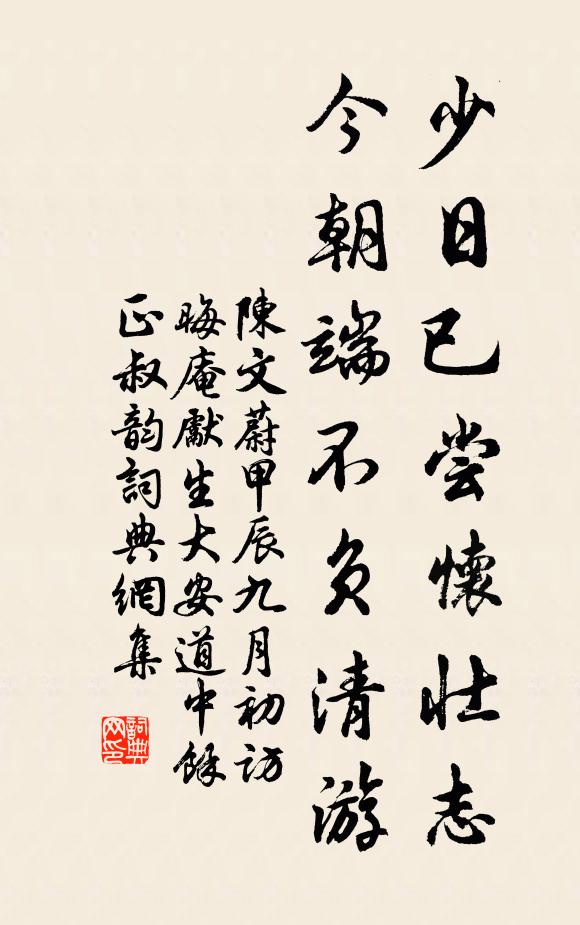 少日已尝懷壮志
今朝端不负清游
陳文蔚甲辰九月初访
晦庵獻生大安道中餘
正叔韵詞典網集
詞典网印